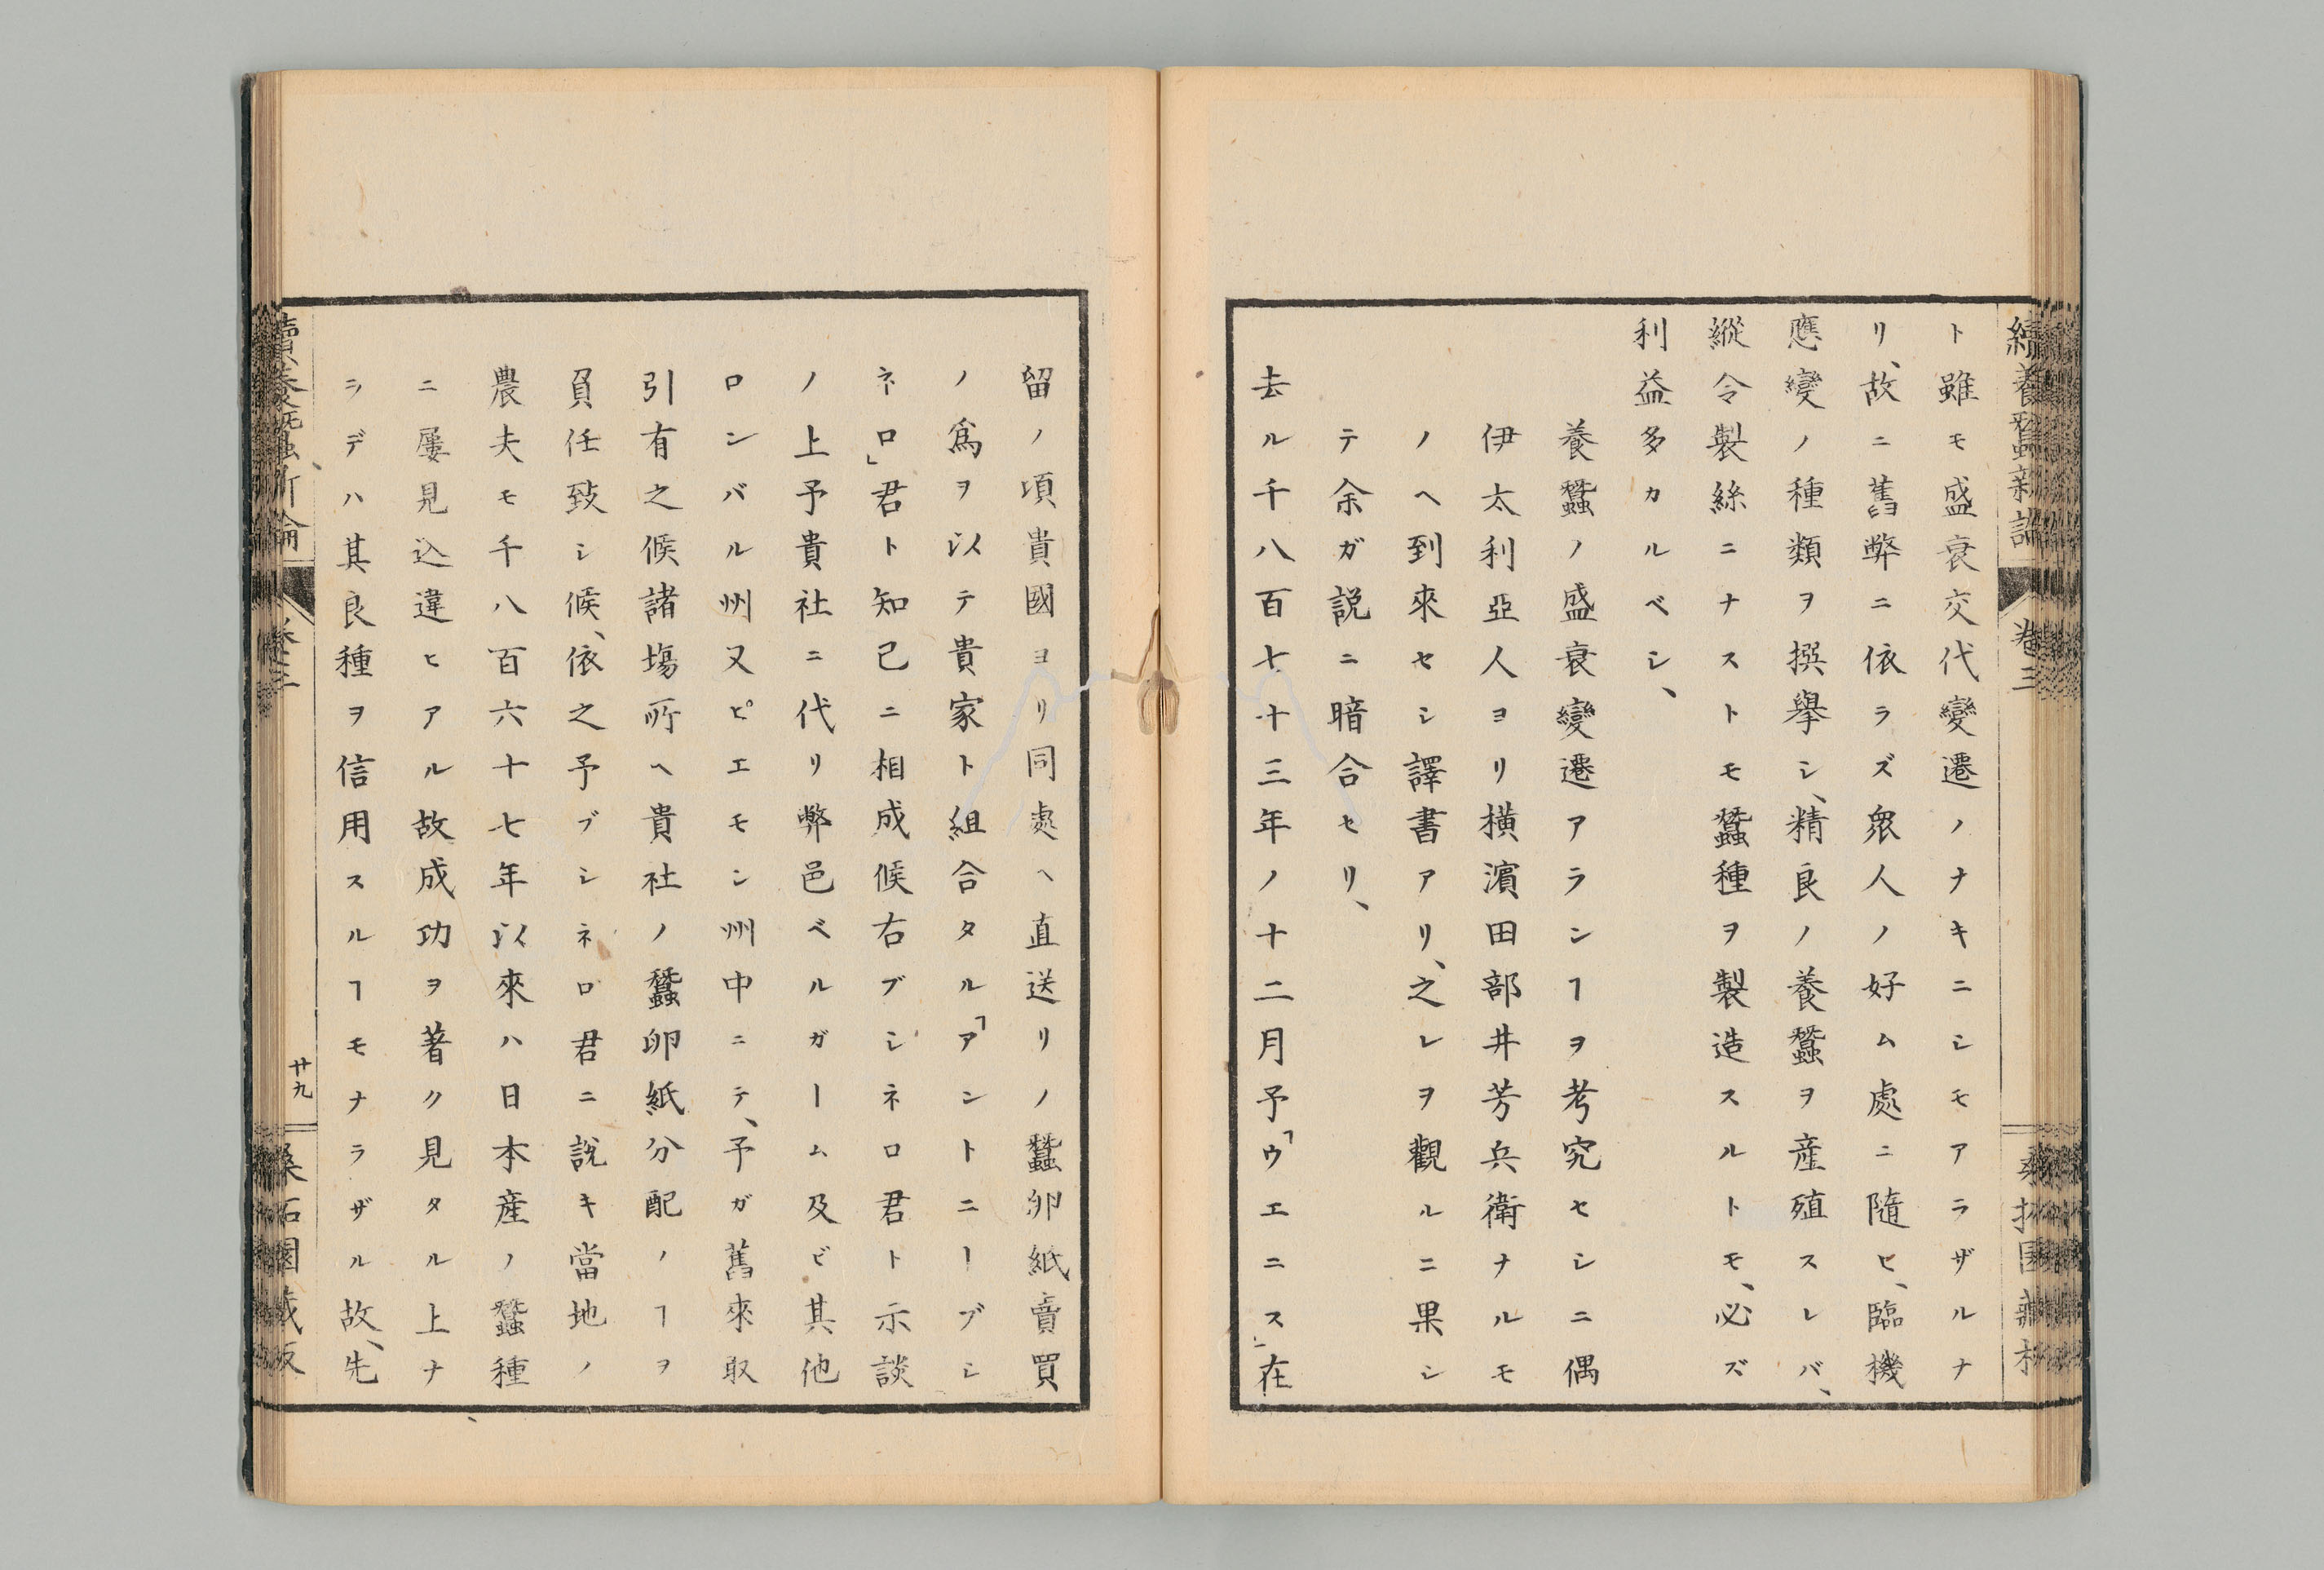 續養蠶新論
卷三
ト雖モ盛衰交代變遷ノナキニシモアラザルナ
リ、故ニ舊弊ニ依ラズ衆人ノ好ム處ニ隨ヒ、臨機
應變ノ種類ヲ撰擧シ、精良ノ養蠶ヲ産殖スレバ、
縱令製絲ニナストモ蠶種ヲ製造スルトモ、必ズ
利益多カルベシ、
養蠶ノ盛衰變遷アランヿヲ考究セシニ偶
伊太利亞人ヨリ横濱田部井芳兵衛ナルモ
ノヘ到來セシ譯書アリ、之レヲ觀ルニ果シ
テ余ガ説ニ暗合セリ、
去ル千八百七十三年ノ十二月予「ウエニス」在
留ノ頃貴國ヨリ同處ヘ直送リノ蠶卵紙賣買
ノ爲ヲ以テ貴家ト組合タル「アントニーブシ
ネロ」君ト知己ニ相成候右ブシネロ君ト示談
ノ上予貴社ニ代リ弊邑ベルガーム及ビ其他
ロンバル州又ピエモン州中ニテ、予ガ舊來取
引有之候諸塲所ヘ貴社ノ蠶卵紙分配ノヿヲ
負任致シ候、依之予ブシネロ君ニ説キ當地ノ
農夫モ千八百六十七年以來ハ日本産ノ蠶種
ニ屢見込違ヒアル故成功ヲ著ク見タル上ナ
ラデハ其良種ヲ信用スルヿモナラザル故、先
續養蠶新論
卷三
廿九
桑柘園藏版